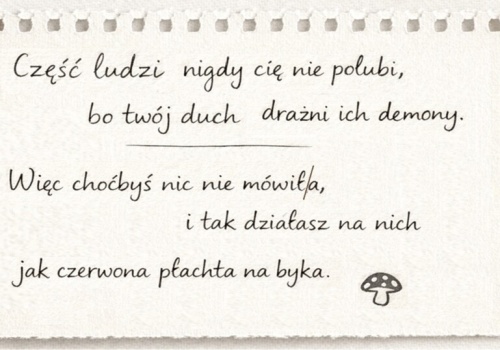 Część ludzi nigdy cię nie polubi,
bo twój duch drażni ich demony.
Więc choćbyś nic nie mówił/a,
i tak działasz na nich
jak czerwona płachta na byka.